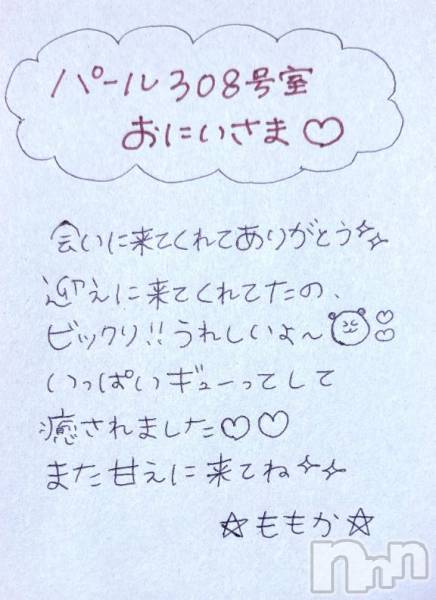 パール308号室
おにいさま♡
会いに来てくれてありがとう✧✧
迎えに来てくれてたの、
ビックリ!!うれしいよ〜
いっぱいギューってして
癒されました♡♡
また甘えに来てね✧✧
☆ももか☆
nnn